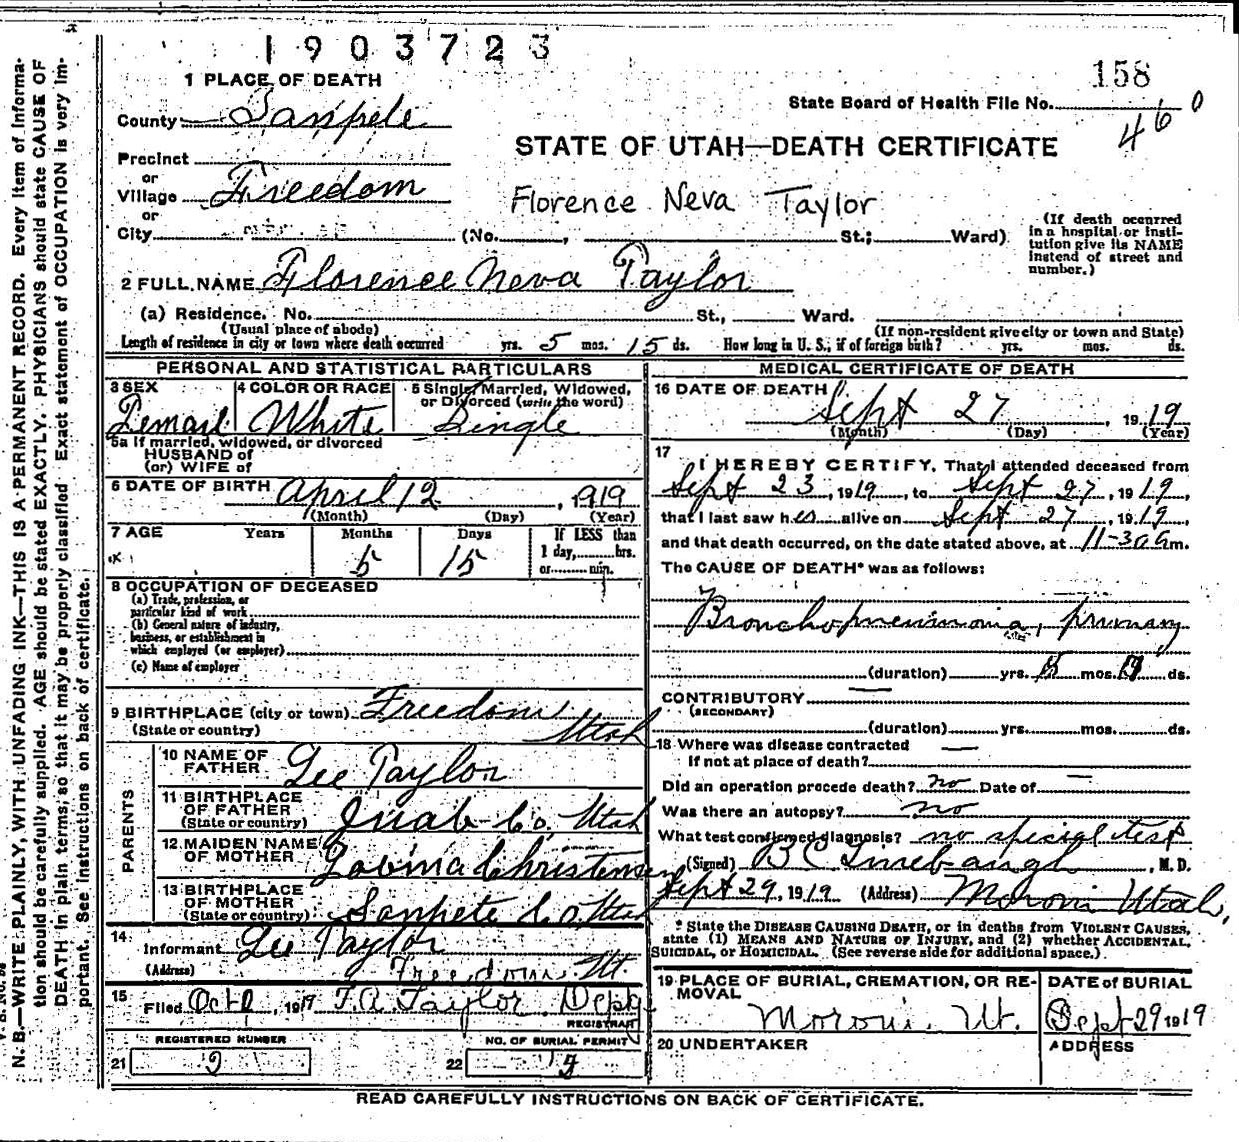 1903723
158
State Board of Health File No. 460
STATE OF UTAH—DEATH CERTIFICATE
Florence Neva Taylor
1 PLACE OF DEATH
County Sanpete
Precinct
or
Village Freedom
or
City (No. , St.; Ward)
(If death occurred in a hospital or institution give its NAME instead of street and number.)
2 FULL NAME Florence Neva Taylor
(a) Residence. No. St., Ward.
(Usual place of abode) (If non-resident give city or town and State)
Length of residence in city or town where death occurred yrs. 5 mos. 15 ds. How long in U. S., if of foreign birth? yrs. mos. ds.
PERSONAL AND STATISTICAL PARTICULARS
3 SEX 4 COLOR OR RACE 5 Single, Married, Widowed, or Divorced (write the word)
Female White Single
5a If married, widowed, or divorced
HUSBAND of
(or) WIFE of
6 DATE OF BIRTH April 12, 1919
(Month) (Day) (Year)
7 AGE Years Months Days If LESS than
1 day, hrs.
or min.
5 15
8 OCCUPATION OF DECEASED
(a) Trade, profession, or
particular kind of work
(b) General nature of industry,
business, or establishment in
which employed (or employer)
(c) Name of employer
9 BIRTHPLACE (city or town) Freedom
(State or country) Utah
PARENTS
10 NAME OF FATHER Lee Taylor
11 BIRTHPLACE OF FATHER (State or country) Juab Co, Utah
12 MAIDEN NAME OF MOTHER Christensen
13 BIRTHPLACE OF MOTHER (State or country) Sanpete Co Utah
14 Informant Lee Taylor
(Address) Freedom Ut.
15 Filed Oct 2, 1919 F.A. Taylor Depty
REGISTRAR
REGISTERED NUMBER NO. OF BURIAL PERMIT
21 9 22
MEDICAL CERTIFICATE OF DEATH
16 DATE OF DEATH Sept 27, 1919
(Month) (Day) (Year)
17
I HEREBY CERTIFY, That I attended deceased from
Sept 23, 1919, to Sept 27, 1919,
that I last saw her alive on Sept 27, 1919,
and that death occurred, on the date stated above, at 11-30 a m.
The CAUSE OF DEATH* was as follows:
Bronchopneumonia, primary
(duration) yrs. mos. ds.
CONTRIBUTORY
(SECONDARY)
(duration) yrs. mos. ds.
18 Where was disease contracted
If not at place of death?
Did an operation precede death? no Date of —
Was there an autopsy? no
What test confirmed diagnosis? no special test
(Signed) B C Linebaugh, M. D.
Sept 29, 1919 (Address) Moroni Utah,
* State the DISEASE CAUSING DEATH, or in deaths from VIOLENT CAUSES,
state (1) MEANS AND NATURE OF INJURY, and (2) whether ACCIDENTAL,
SUICIDAL, or HOMICIDAL. (See reverse side for additional space.)
19 PLACE OF BURIAL, CREMATION, OR REMOVAL DATE of BURIAL
Moroni, Ut. Sept 29 1919
20 UNDERTAKER ADDRESS
READ CAREFULLY INSTRUCTIONS ON BACK OF CERTIFICATE.
N. B.—WRITE PLAINLY, WITH UNFADING INK—THIS IS A PERMANENT RECORD. Every item of information should be carefully supplied. AGE should be stated EXACTLY. PHYSICIANS should state CAUSE OF DEATH in plain terms, so that it may be properly classified. Exact statement of OCCUPATION is very important. See instructions on back of certificate.